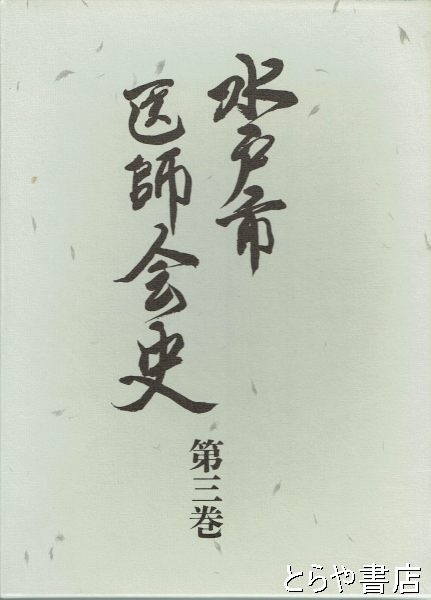 水戸市
医師会史
第三巻
とらや書店